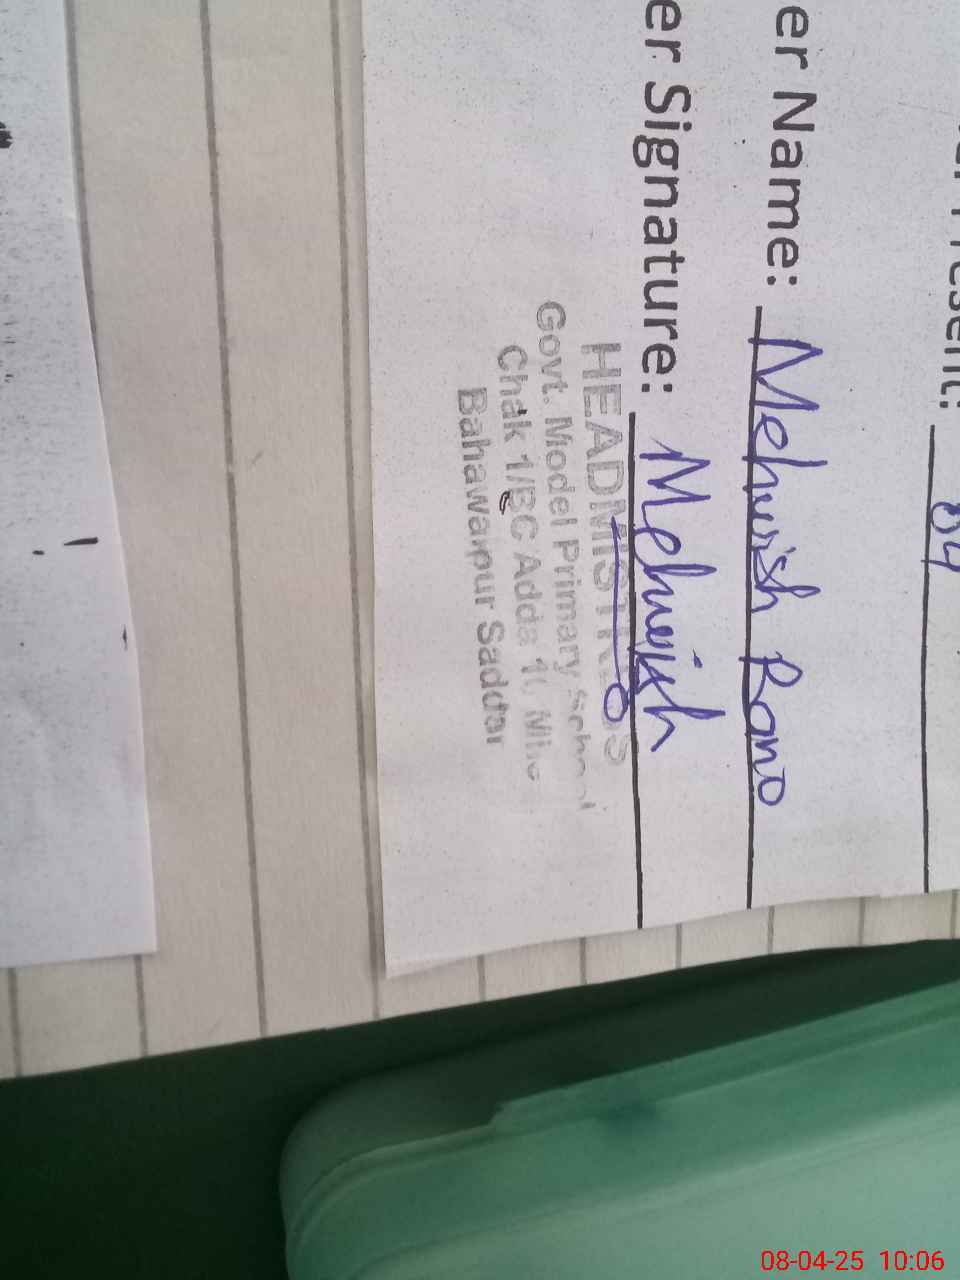 Present: 04
er Name: Mehwish Bano
er Signature: Mehwish
HEADMISTRESS
Govt. Model Primary School
Chak 1/BC Adda 10
Bahawalpur Saddar
08-04-25 10:06